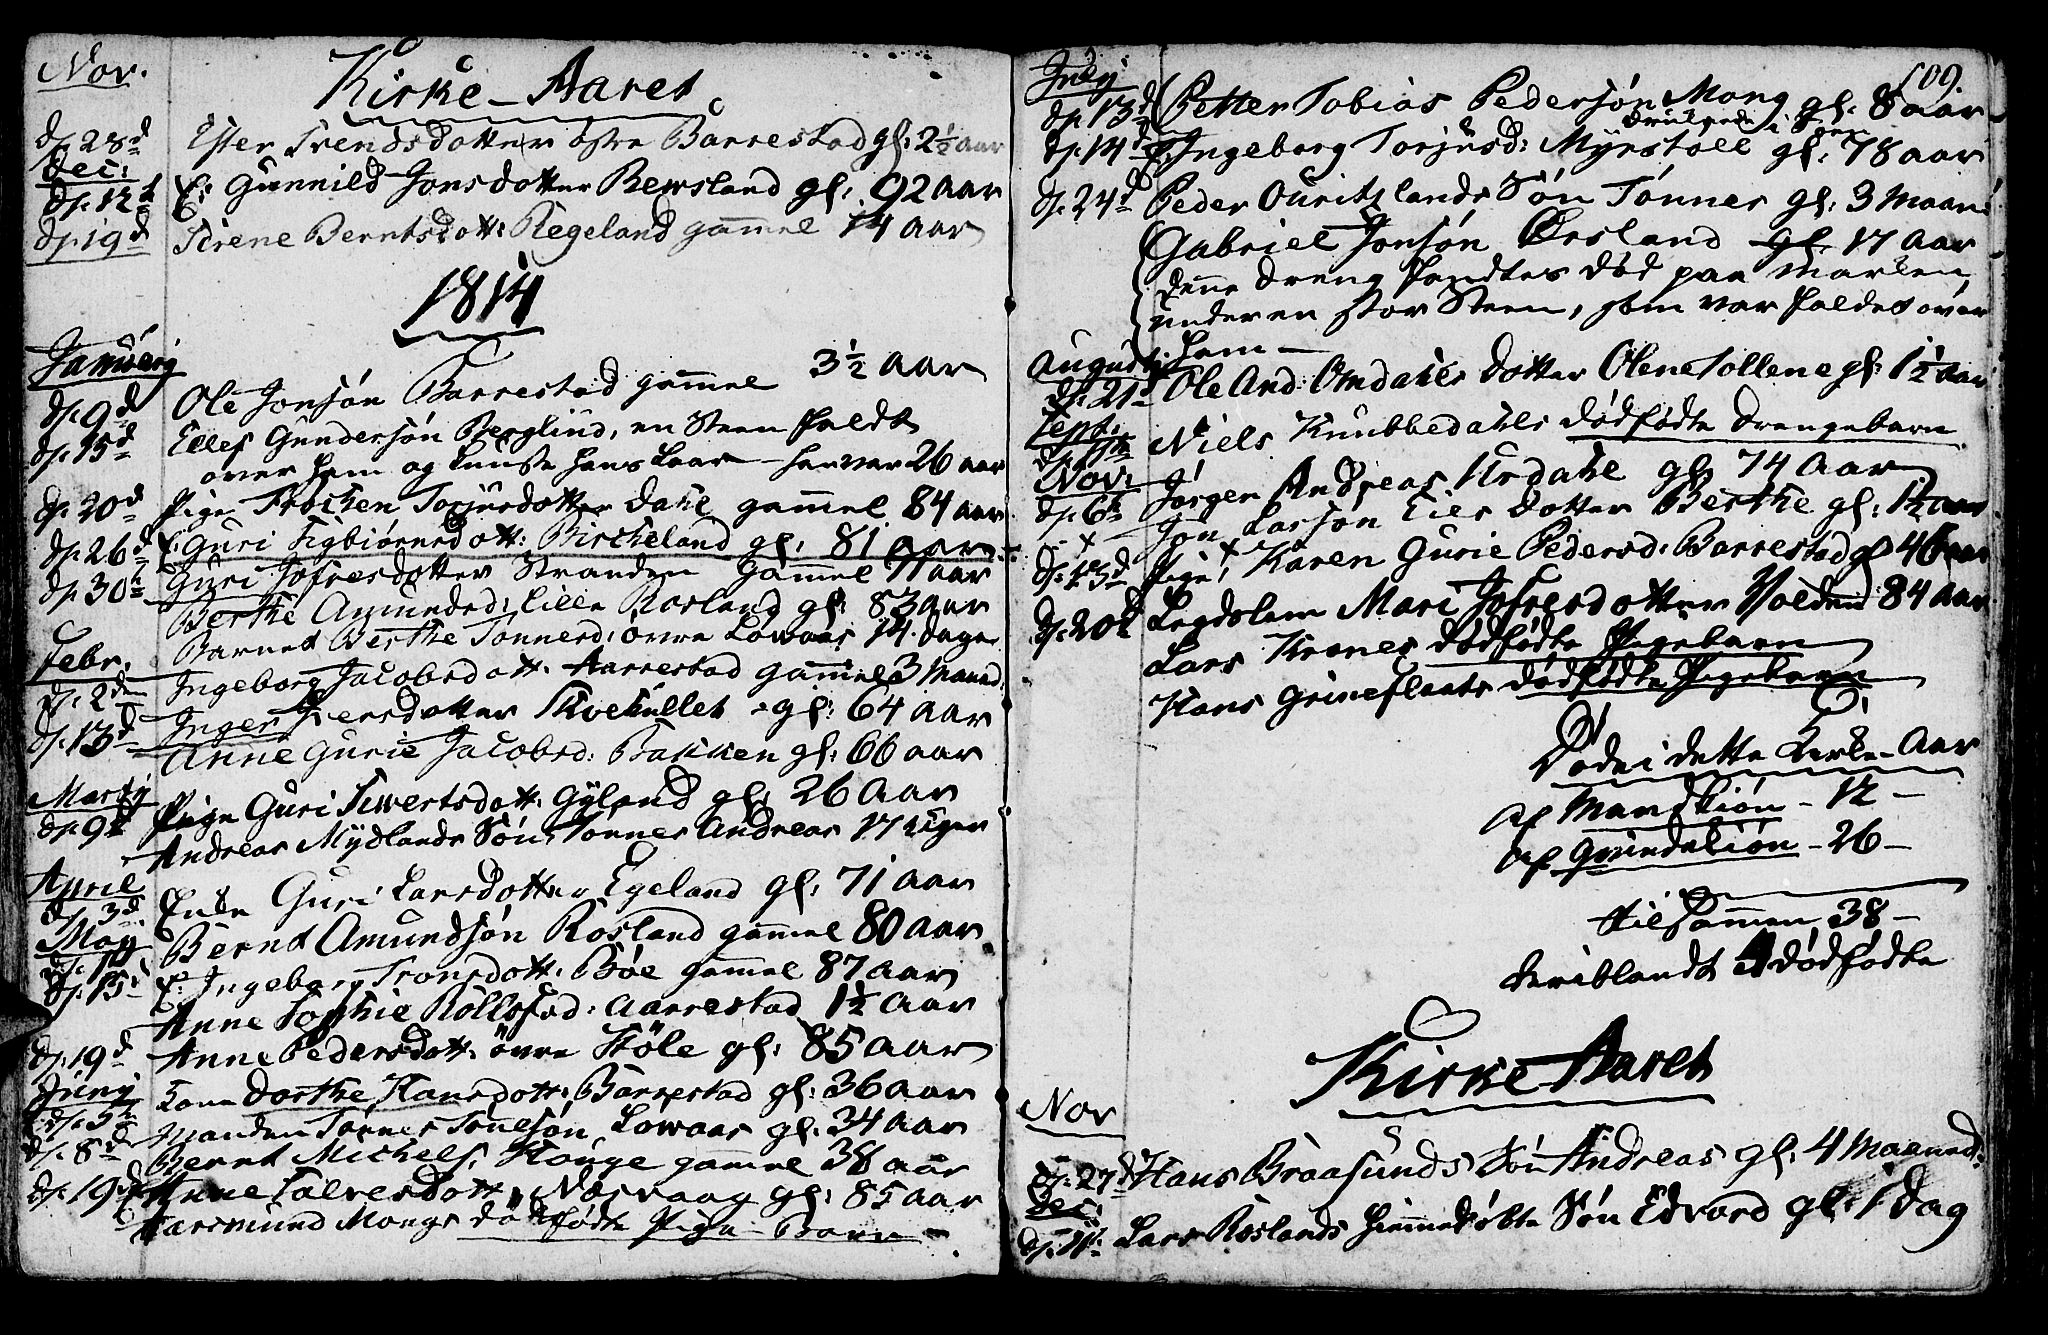 Nov.
Kirke-Aaret
d. 28d Ester Trendsdatter östre Barrestad gl: 2½ aar
Dec:
d. 12t E: Gunnild Jonsdatter Rewsland gl: 92 aar
d. 19d Sirene Berntsdott: Regeland gammel 14 aar
1814
Januarij
d. 9d Ole Jonsøn Barrestad gammel 3½ aar
d. 15d Elles Gundersøn Berglind, en Steen faldt
over ham og knuste hans Laar - han var 26 aar
d. 20d Pige Trochen Torjusdotter Dahl gammel 84 aar
d. 26d E: Guri Sigbiørnsdott: Bircheland gl: 81 aar
d. 30te Guri Jofresdotter Stranden gammel 71 aar
Berthe Amundsd: lille Rosland gl: 83 aar
Barnet Berthe Tønnesd: övre Lowaas 14 dage
Febr.
d. 2den Ingeborg Jacobsdott: Aarrestad gammel 3 Maaned:
d. 13d Inger Siersdotter gl: 64 aar
Anne Gurie Jacobsd: Bakken gl: 66 aar
Martij
d. 9de Pige Guri Siwertsdott: Gyland gl: 26 aar
Andreas Mydlands Søn Tønnes Andreas 17 uger
April
d. 3d Enke Guri Larsdotter Egeland gl: 71 aar
Maij
Bernt Amundsøn Rosland gammel 80 aar
d. 15d E: Ingeborg Tronsdott: Bøe gammel 87 aar
Anne Sophie Rollefsd: Aarrestad 1½ aar
d. 19d Anne Pedersdott: övre Støle gl: 85 aar
Junij
d. 5te Kone Dorthe Hansdott: Barrestad gl: 36 aar
Manden Tønnes Tønesøn Lowaas gl: 34 aar
d. 8d Bernt Michels: Hauge gammel 38 aar
d. 19d Anne Salvesdott: Nesvaag gl: 85 aar
Aasmund Mongs dødfødte Pige Barn
109.
Julij
d. 13d Petter Tobias Pedersøn Mong gl: 8 aar
druknede i
d. 14d E: Ingeborg Torjusd: Myrstøll gl: 78 aar
d. 24d Peder Ouritzlands Søn Tønnes gl: 3 Maan:
Gabriel Jonsøn Ørsland gl: 17 aar
denne Dreng fandtes død paa Marken
under en stor Steen, som var faldes over
ham -
Augustij
d. 21d Ole And: Omdahls Dotter Olene Tollene gl: 1½ aar
Septb:
Niels Knubbedahls dødfødte Drengebarn
Nov:
d. 6te Jørgen Andreas Urdahl gl: 74 aar
Jon Larsøn Eies Dotter Berthe gl: 1½ aar
d. 13d Pige Karen Gurie Pedersd: Barrestad gl 46 aar
d. 20d Legdslem Mari Jofresdotter Wolden 84 aar
Lars Krones dødfødte Pigebarn
Hans Grineflaats dødfødte Pigebarn
Døde i dette Kirke-Aar
Af Mandkiøn - 12 -
Af Qvindekiøn - 26 -
tilsammen 38 -
deriblandt 4 dødfødte
Kirke Aaret
Nov
d. 27d Hans Braasunds Søn Andreas gl: 4 Maaned:
Dec:
d. 11te Lars Roslands hiemmedøbte Søn Edvard gl: 1 Dag